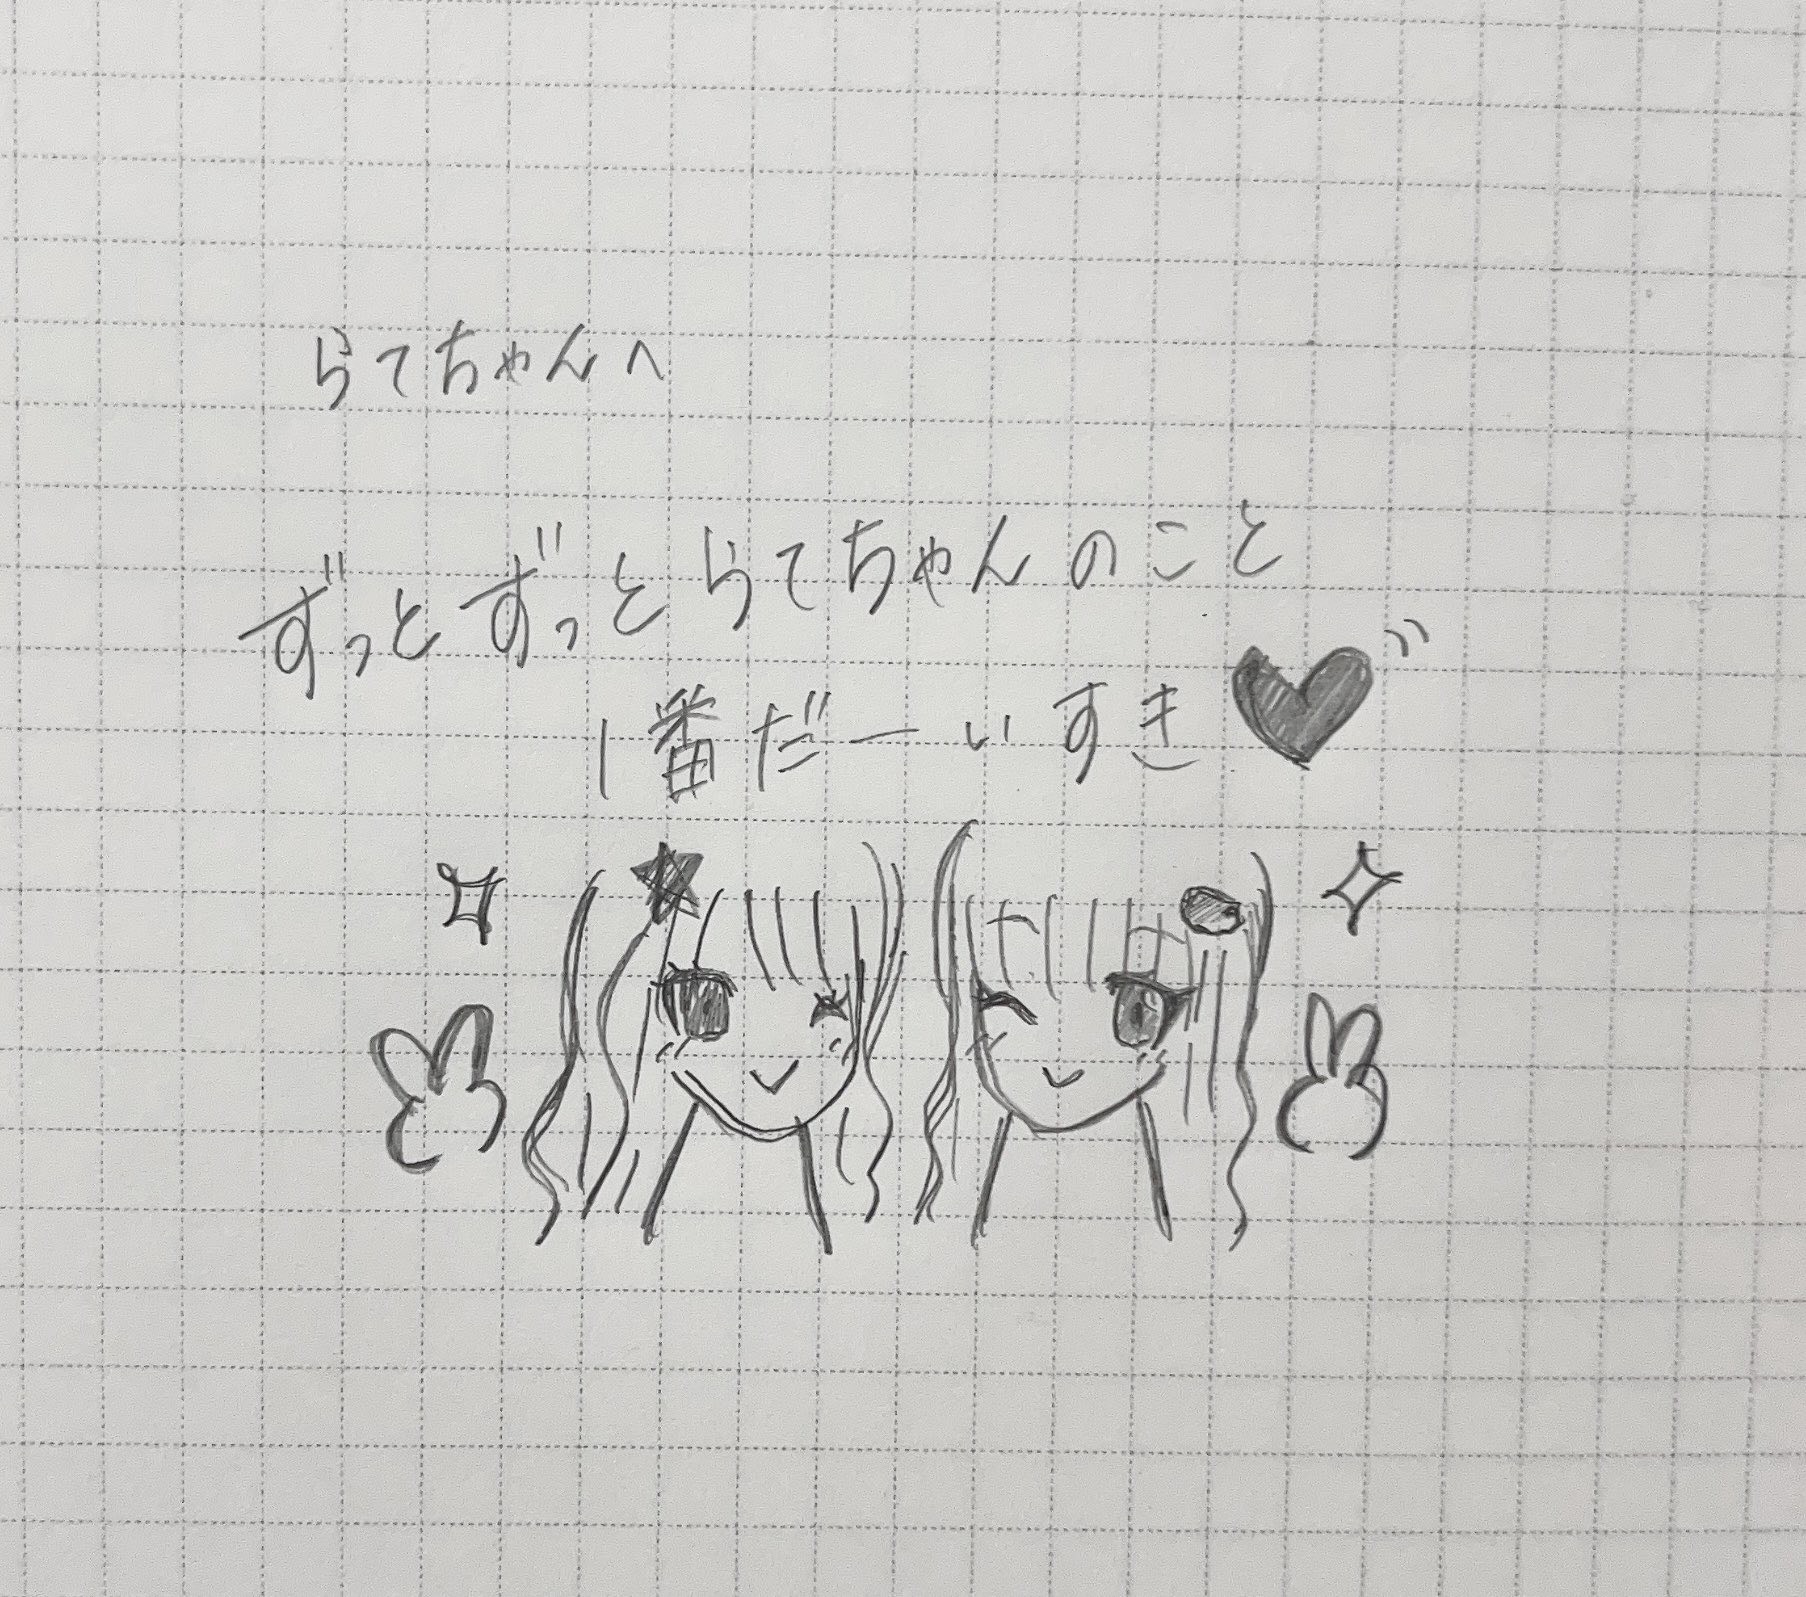 らてちゃんへ
ずっとずっとらてちゃんのこと
1番だーいすき♥